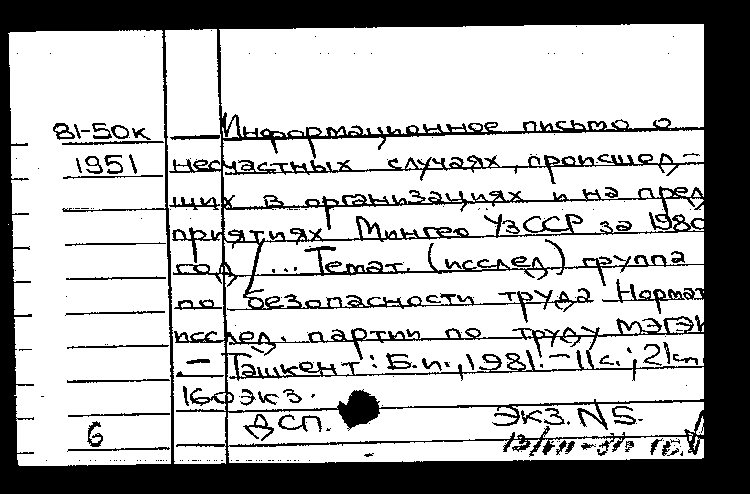 81-50к Информационное письмо о
1951 несчастных случаях, происшед-
щих в организациях и на пред
приятиях Мингео УзССР за 1980
год / ... Темат. (исслед) группа
по безопасности труда Нормат
исслед. партии по труду МЭГЭИ
.- Ташкент : Б.и., 1981.- 11 с.; 21 см.
160 экз.
6 ДСП. Экз. N5.